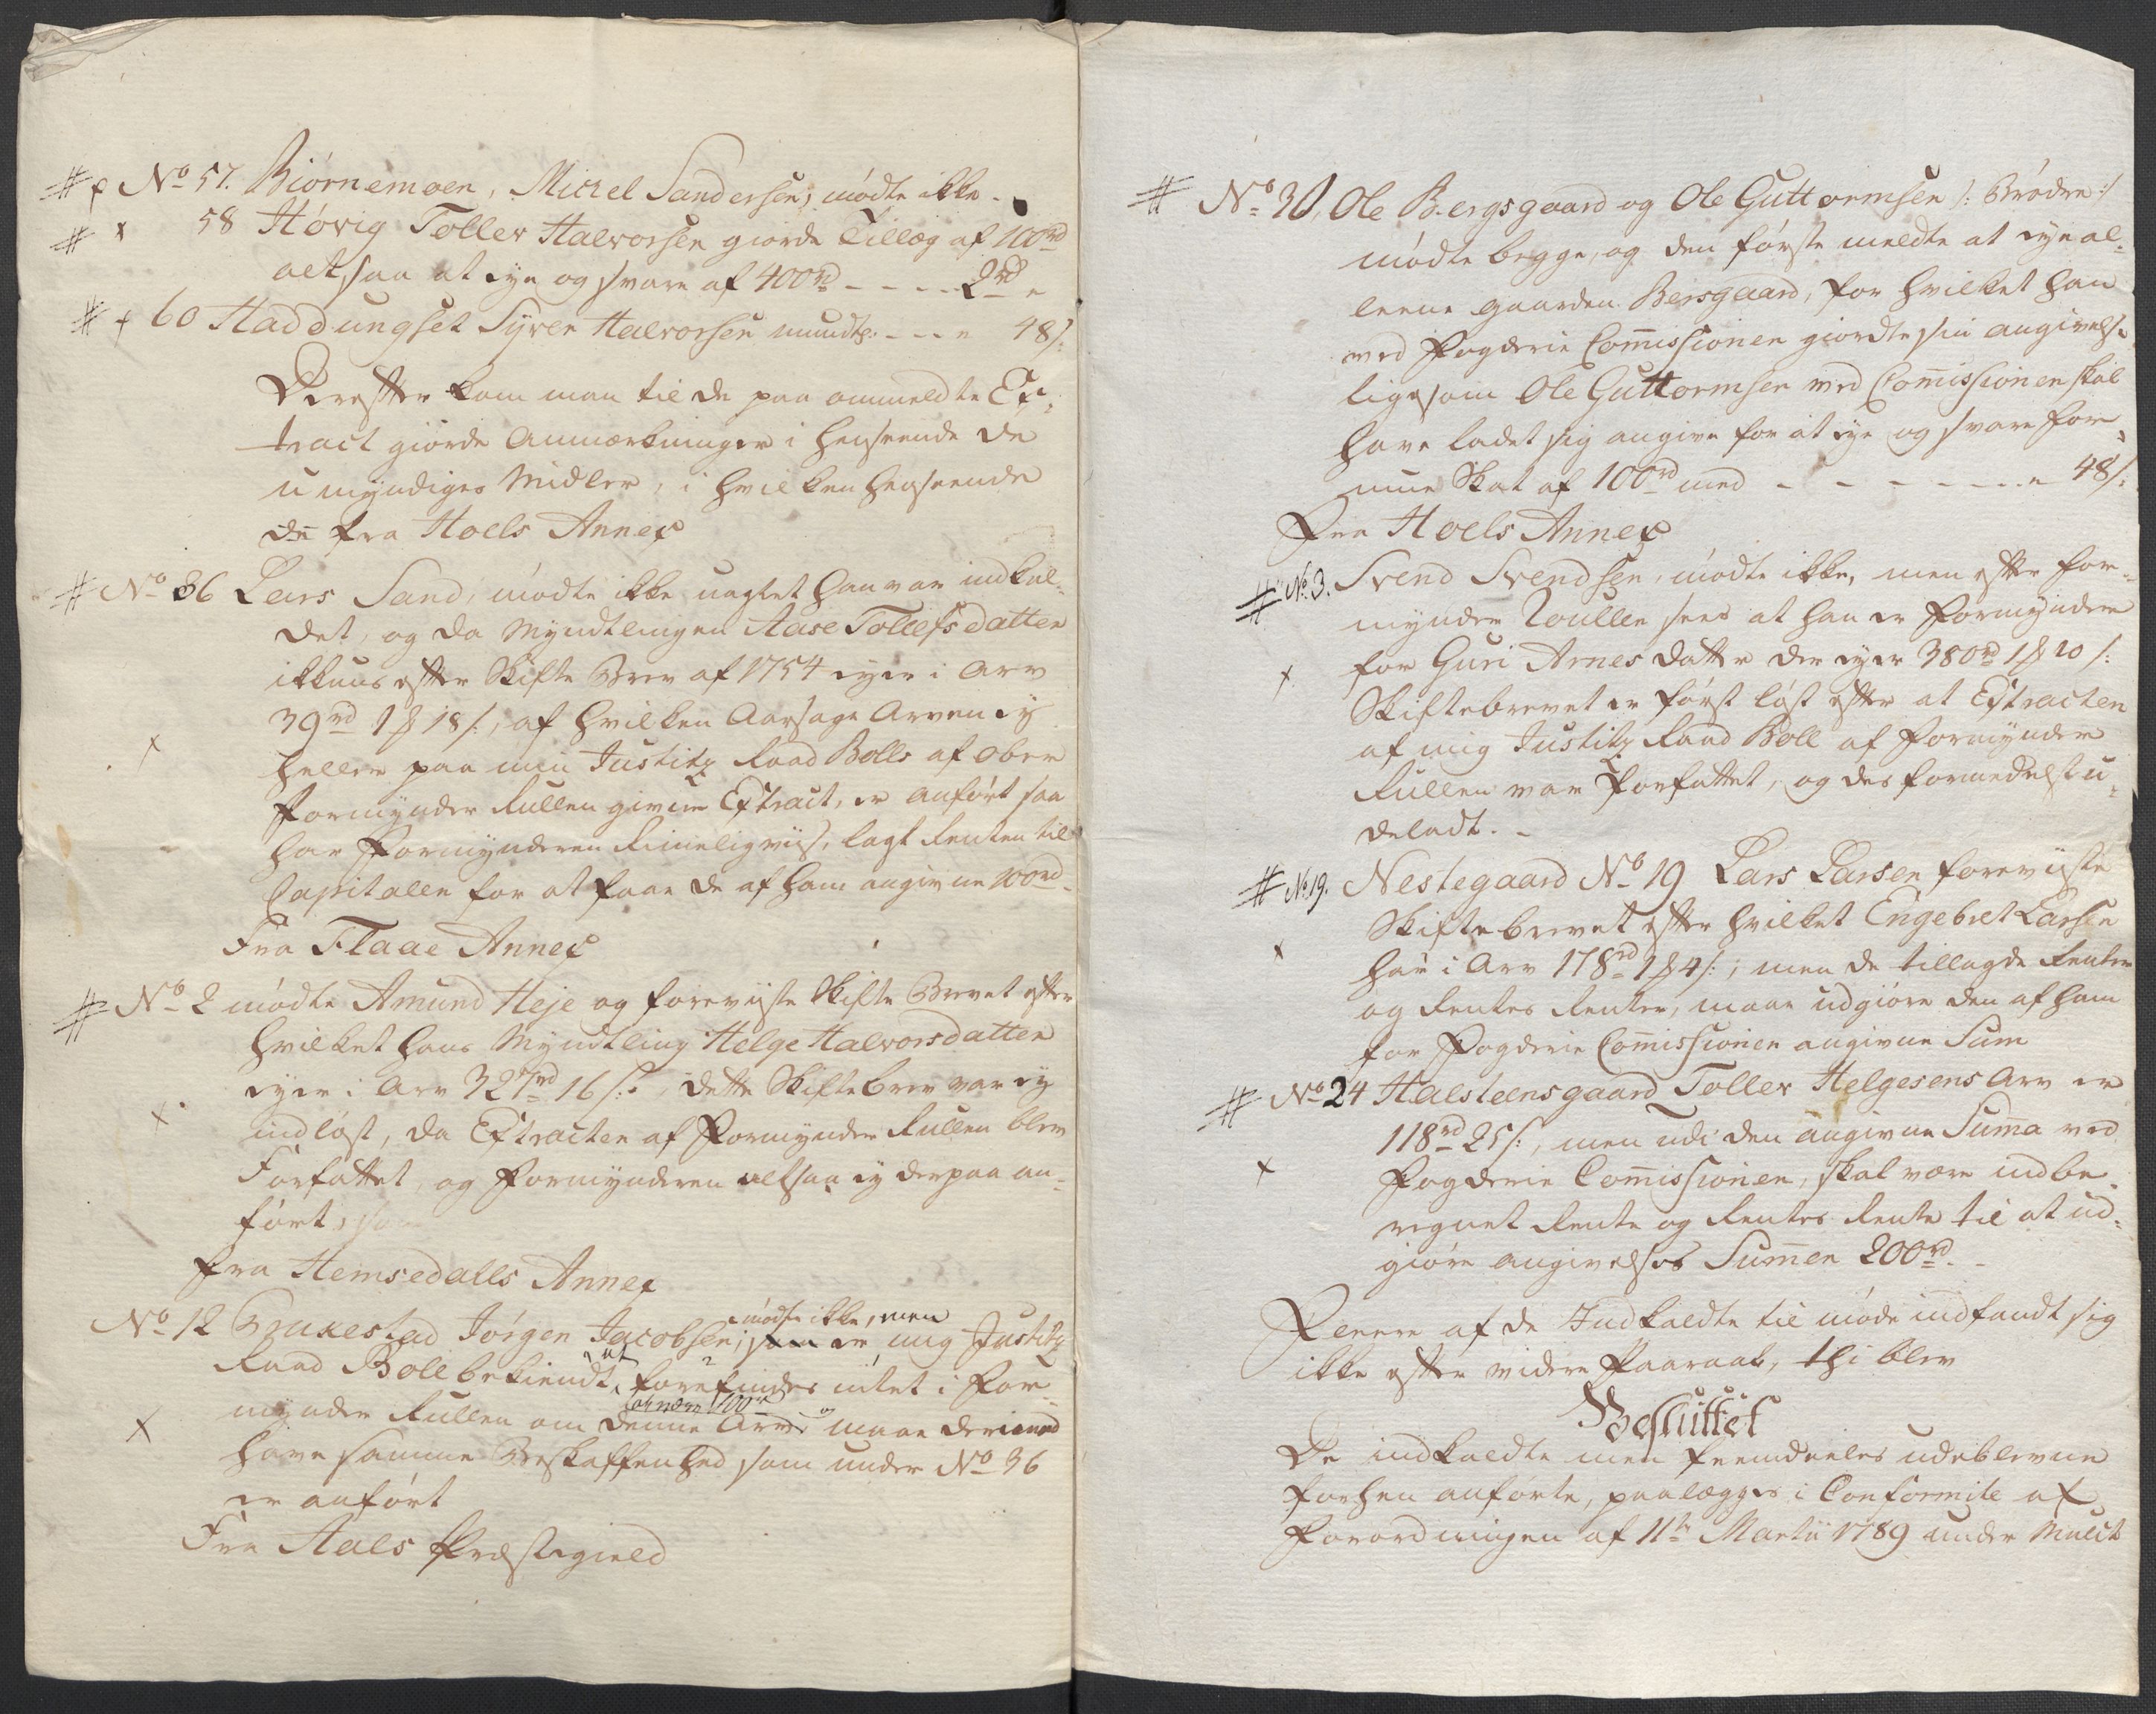 # x No 57. Biörnemoen, Mickel Sandersen, mödte ikke -
# x 58 Hövig Tollev Halvorsen giorde Tillæg af 100rd
altsaa at eye og svare af 400rd - - - - 2rd "
# x 60 Haddungset Syver Halvorsen mundtl: - - - " 48 s:
Derefter kom man til de paa ommeldte Ex-
tract giorde Anmærkninger i henseende de
umyndiges Midler, i hvilken henseende
de fra Hoels Annex
# No 36 Lars Sand, mödte ikke uagtet han var indkal-
det, og da Myndtlingen Aase Tollefsdatter
ikkuns efter Skifte Brev af 1754 eyer i Arv
39rd 1 ƒ 18 s:, af hvilken Aarsage Arven ey
x heller paa min Justitz Raad Bolls af Ober
Formynder Rullen given Extract, er anfört saa
har Formynderen Rimeligviis, lagt Renten til
Capitalen for at faae de af ham angivne 100rd -
Fra Flaae Annex
# No 2 mödte Amund Heje og foreviiste Skifte Brevet efter
hvilket hans Myndtling Helge Halvorsdatter
eyer i Arv 327rd 16 s:, dette Skiftebrev var ey
x indlöst, da Extracten af Formynder Rullen blev
Forfattet, og Formynderen altsaa ey derpaa an-
fört
fra Hemsedalls Annex
mödte ikke, men
No 12 Jörgen Jacobsen, er mig Justitz
Raad Boll bekiendt, at forefindes intet i For-
mynder Rullen om denne Arv og maae dermed
x have samme Beskaffenhed som under No 36
er anfört
Fra Aals Præstegield
# No 30, Ole Bergsgaard og Ole Guttormsen /: Brödre :/
mödte begge, og den förste meldte at eye al-
leene gaarden Bersgaard, for hvilket han
ved Fogderie Commissionen giordte sin angivelse
ligesom Ole Guttormsen ved Commissionen skal
have ladet sig angive for at eye og svare For-
mue Skat af 100rd med - - - - - - - " 48 s:
Fra Hoels Annex
# No 3. Svend Svendsen, mödte ikke, men efter For-
mynder Roullen sees at han er Formynder
x for Guri Arnesdatter der eyer 380rd 1 ƒ 20 s:
Skiftebrevet er först löst efter at Extracten
af mig Justitz Raad Boll af Formynder
Rullen var Forfattet, og des formedelst u-
deladt. -
# No 19. Nestegaard No 19 Lars Larsen foreviiste
Skiftebrevet efter hvilket Engebret Larsen
x har i Arv 178rd 1 ƒ 4 s:; men de tillagde Renter
og Rentes Renter, maae udgiöre den af ham
for Fogderie Commissionen angivne Sum
# No 24 Halsteensgaard Tollev Helgesens Arv er
118rd 25 s:, men udi den angivne Summa ved
x Fogderie Commissionen, skal være indbe-
regnet Rente og Rentes Rente til at ud-
giöre angivelses Summen 200rd -
Fleere af de Indkaldte til möde indfandt sig
ikke efter videre Paaraab, thi blev
Besluttet
De indkaldte men fremdeeles udeblevne
forhen anförte, paalægges i Conformite af
Forordningen af 11te Martii 1789 under Mulct